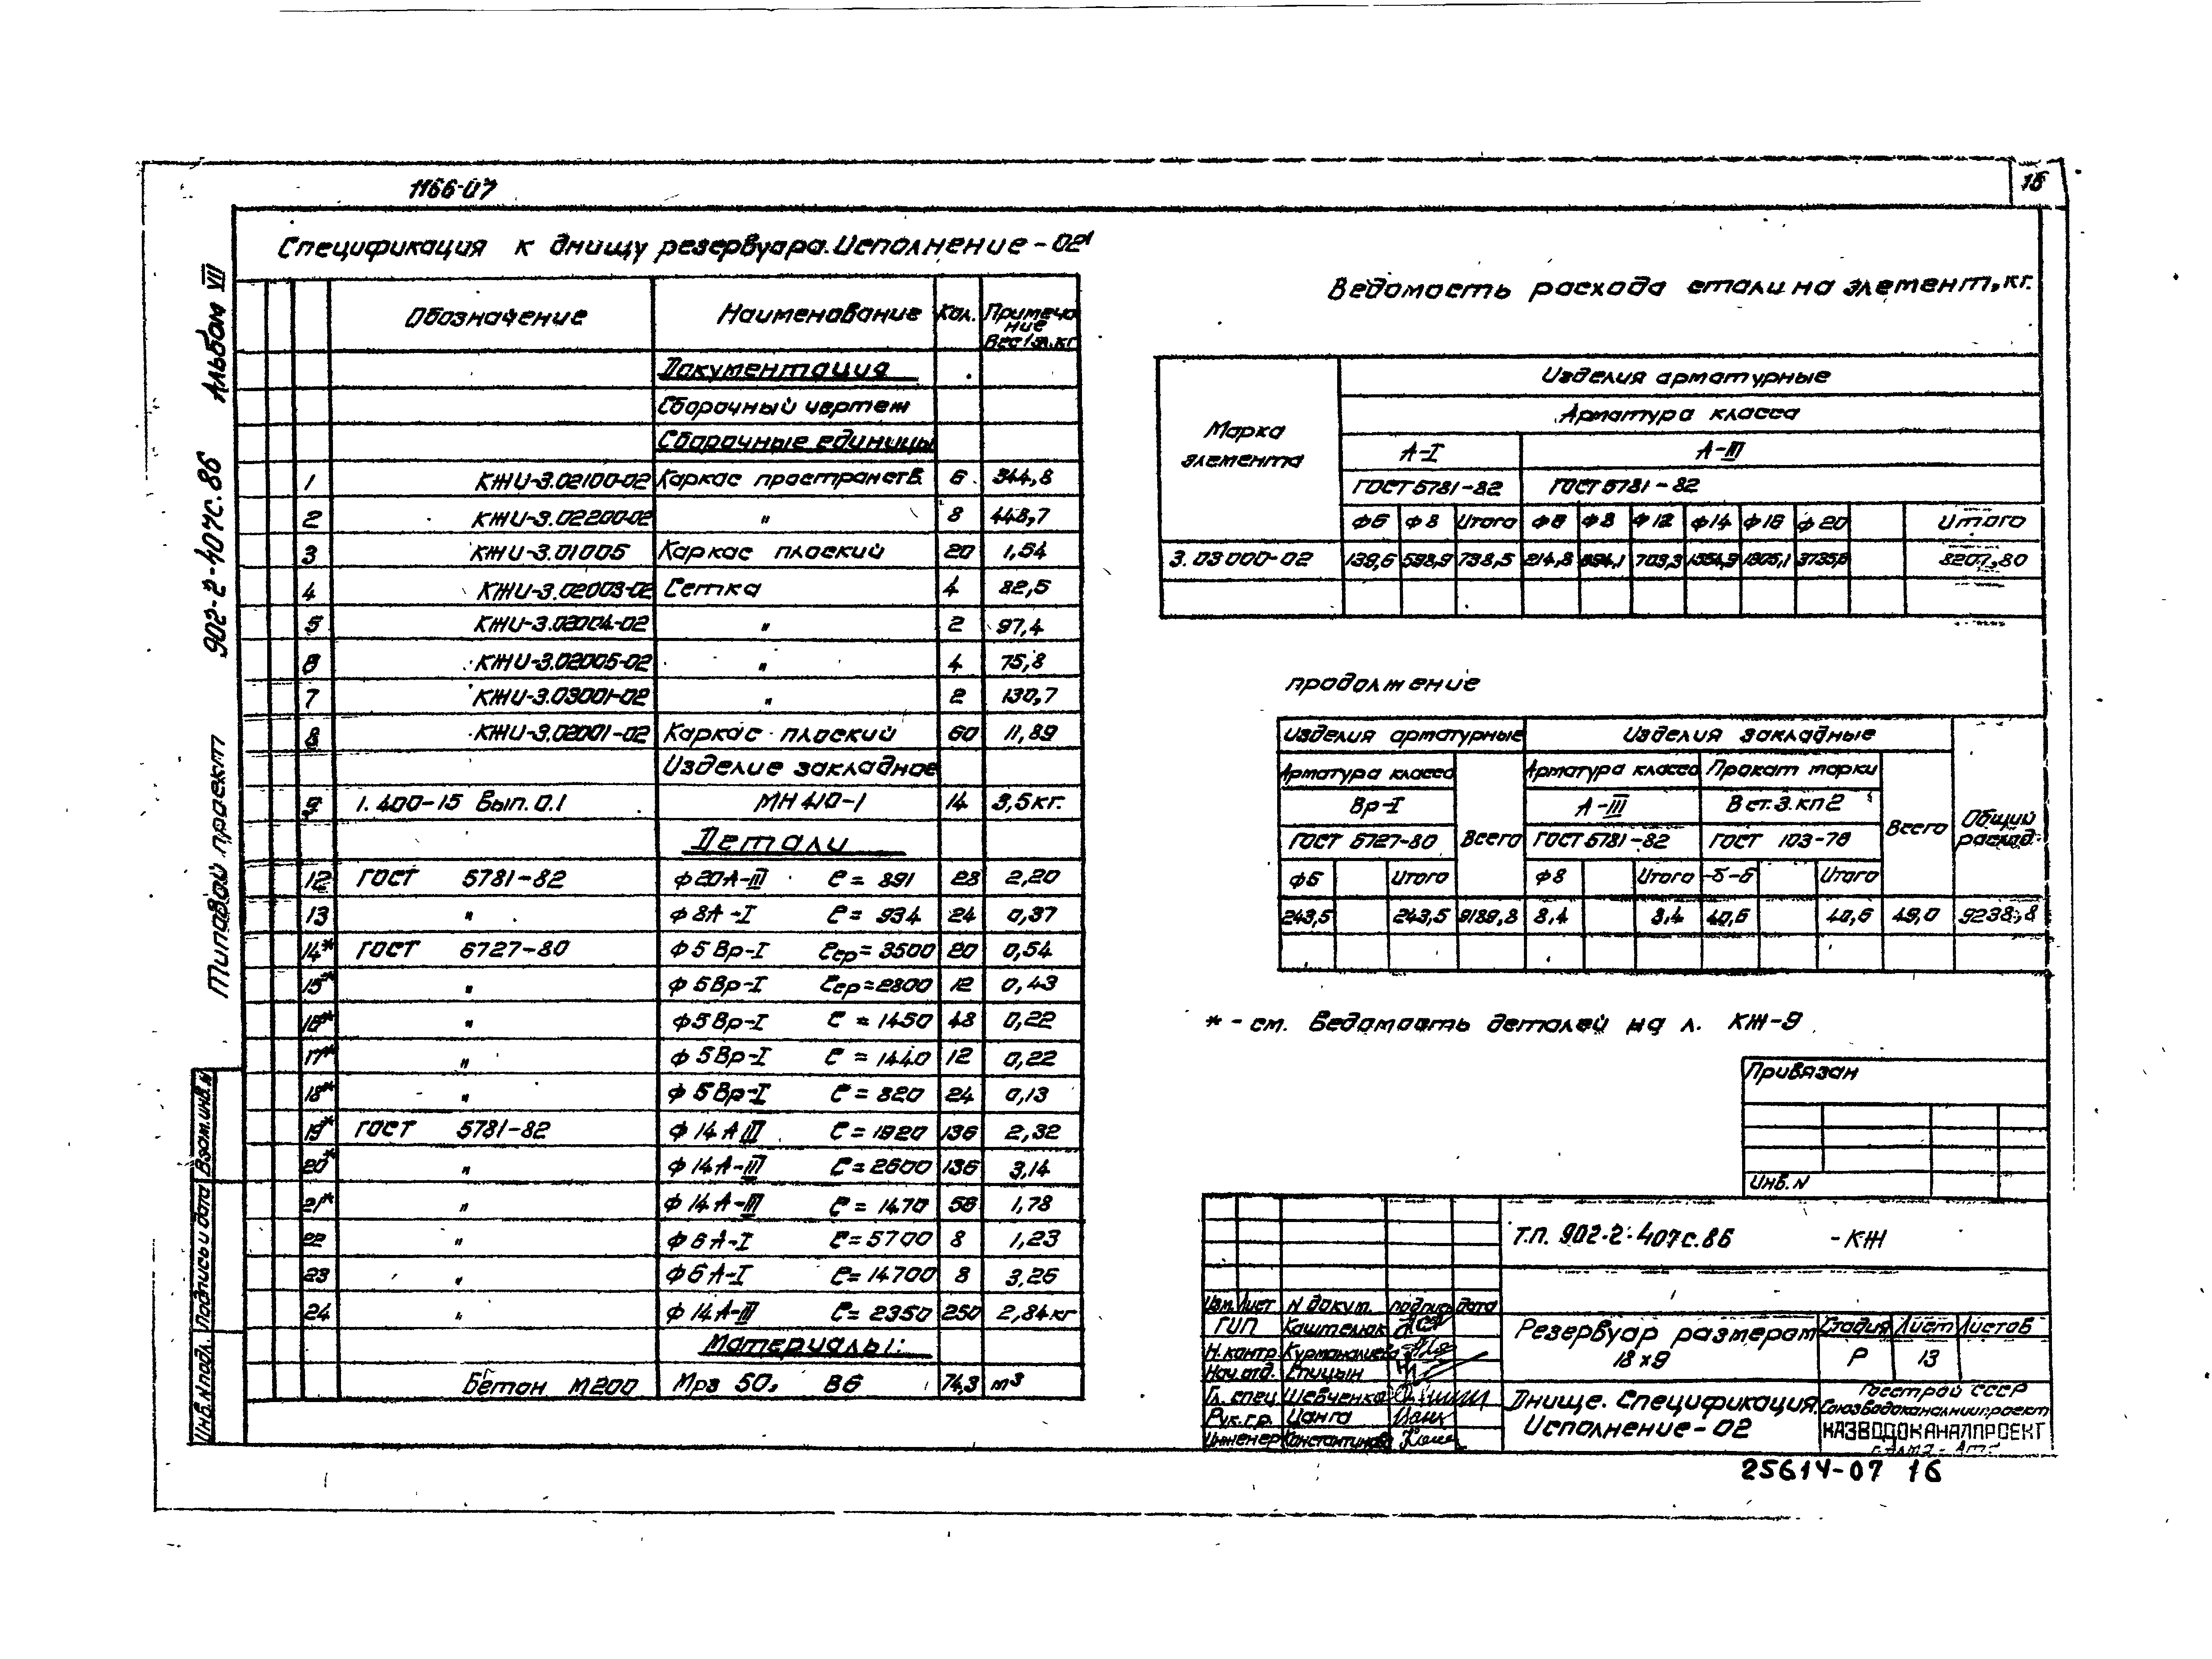 1166-07
15
Спецификация к днищу резервуара. Исполнение-02
Обозначение Наименование Кол. Примечание Вес 1эл.кг
Документация
Сборочный чертеж
Сборочные единицы
1 КЖИ-3.02100-02 Каркас пространств. 6 344,8
2 КЖИ-3.02200-02 " 8 448,7
3 КЖИ-3.01005 Каркас плоский 20 1,54
4 КЖИ-3.02003-02 Сетка 4 82,5
5 КЖИ-3.02004-02 " 2 97,4
6 КЖИ-3.02005-02 " 4 75,8
7 КЖИ-3.03001-02 " 2 130,7
8 КЖИ-3.02001-02 Каркас плоский 60 11,89
Изделие закладное
9 1.400-15 Вып. 0.1 МН 410-1 14 3,5кг.
Детали
12 ГОСТ 5781-82 ф20А-III ℓ= 891 28 2,20
13 " ф8А-I ℓ= 934 24 0,37
14* ГОСТ 6727-80 ф5Вр-I ℓср=3500 20 0,54
15* " ф5Вр-I ℓср=2800 12 0,43
16* " ф5Вр-I ℓ=1450 48 0,22
17* " ф5Вр-I ℓ=1440 12 0,22
18* " ф5Вр-I ℓ=820 24 0,13
19* ГОСТ 5781-82 ф14АIII ℓ=1920 136 2,32
20* " ф14А-III ℓ=2600 136 3,14
21* " ф14А-III ℓ=1470 56 1,78
22 " ф6А-I ℓ=5700 8 1,23
23 " ф6А-I ℓ=14700 8 3,26
24 " ф14А-III ℓ=2350 250 2,84кг
Материалы:
Бетон М200 Мрз 50, В6 74,3 м³
Ведомость расхода стали на элемент, кг.
Марка элемента
Изделия арматурные
Арматура класса
А-I А-III
ГОСТ 5781-82 ГОСТ 5781-82
ф6 ф8 Итого ф6 ф8 ф12 ф14 ф16 ф20 Итого
3.03000-02 139,6 598,9 738,5 214,8 703,3 8207,80
продолжение
Изделия арматурные Изделия закладные
Арматура класса Арматура класса Прокат марки
Вр-I Всего А-III В ст.3.кп2 Всего Общий расход.
ГОСТ 6727-80 ГОСТ 5781-82 ГОСТ 103-76
ф5 Итого ф8 Итого -δ-6 Итого
243,5 243,5 9189,8 8,4 8,4 40,6 40,6 49,0 9238,8
* - см. Ведомость деталей на л. КЖ-9
Привязан
Инв. N
Т.П. 902-2-407с.86 -КЖ
Изм. Лист N докум. подпис дата
ГИП Каштелюк
Н.контр. Курманалиева
Нач.отд. Спицын
Гл. спец Шевченко
Рук.гр. Цанга
Инженер Константинова
Резервуар размером 18х9
Стадия Лист Листов
Р 13
Днище. Спецификация. Исполнение-02
Госстрой СССР
Союзводоканалниипроект
КАЗВОДОКАНАЛПРОЕКТ
г. Алма-Ата
25614-07 16
Типовой проект 902-2-407с.86 Альбом VII
Инв.N подл. Подпись и дата Взам.инв.N